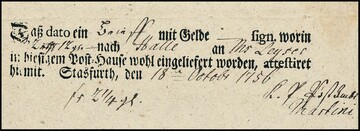 Daß dato ein Brieff mit Gelde sign. worin
12 gr. nach Halle an Mr Leyser
in hiesigem Post-Hause wohl eingeliefert worden, attestiret
hiermit. Stasfurth, den 18 Octobr 1756
fr 2 1/4 gl.
Martini